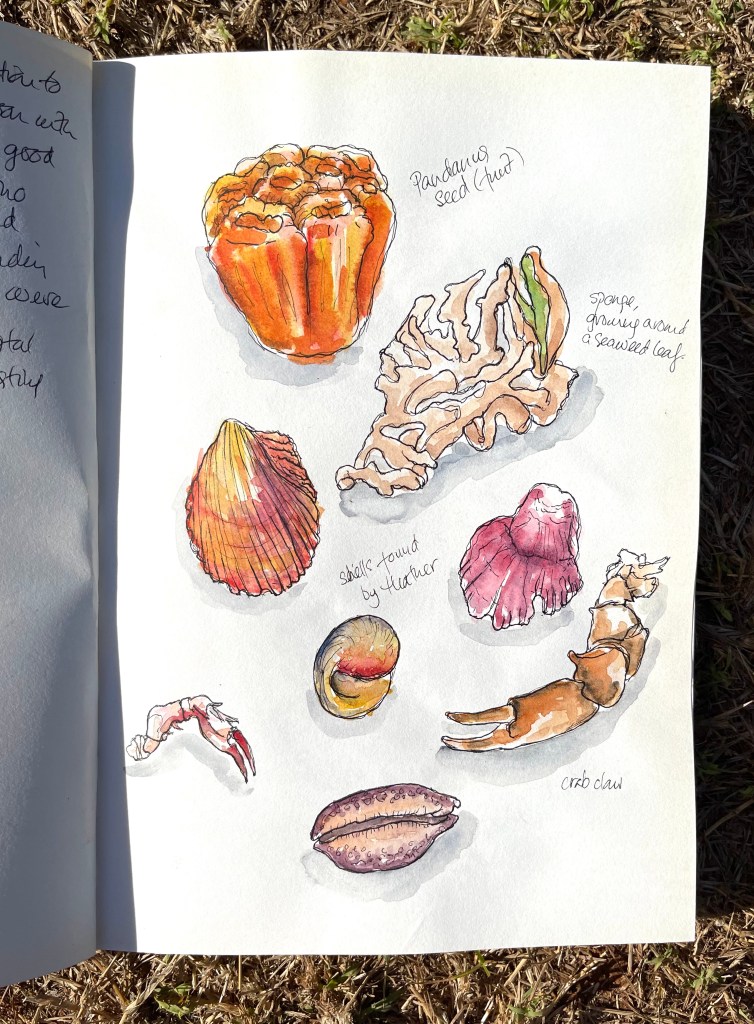 tion to
son with
good
no
d
ndin
were
tal
sting
Pandanus
seed (fruit)
sponge,
growing around
a seaweed leaf.
shells found
by Heather
crab claw